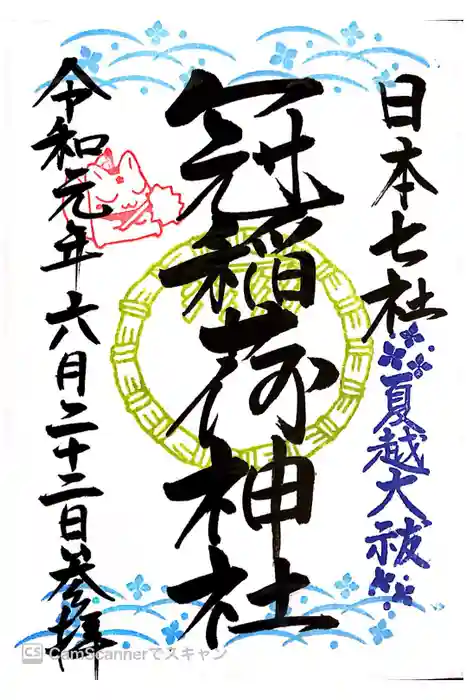 日本七社
夏越大祓
冠稲荷神社
令和元年六月二十二日参拝
CS CamScannerでスキャン